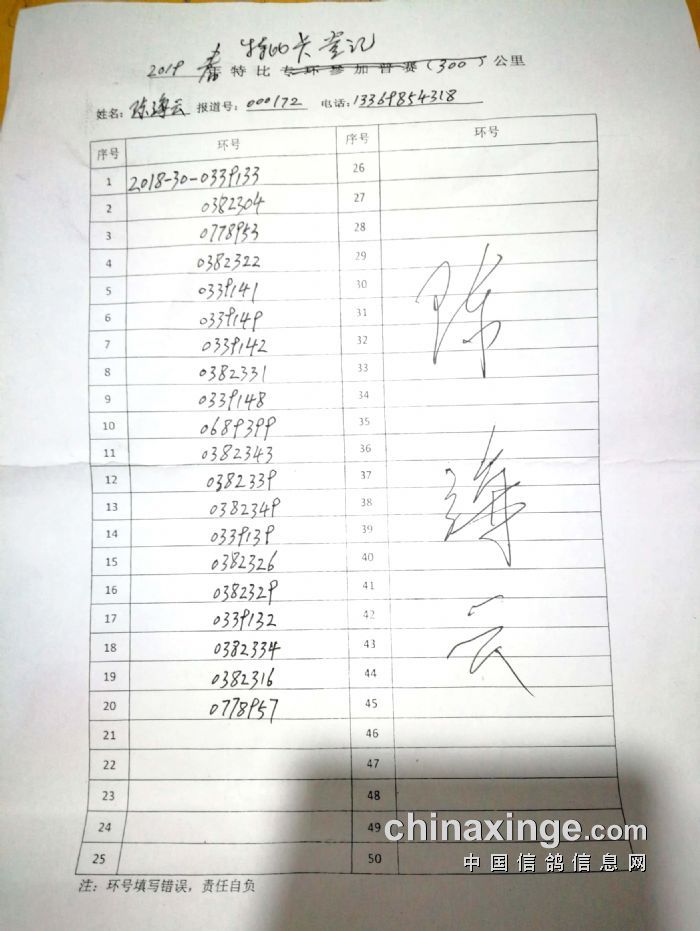 特比卡登记
2019 春季特比专环参加普赛(300)公里
姓名:陈海云 报道号:000172 电话:13369854318
序号 环号 序号 环号
1 2018-30-0339133 26
2 0382304 27
3 0778953 28
4 0382322 29
5 0339141 30
6 0339149 31
7 0339142 32
8 0382331 33
9 0339148 34
10 0689399 35
11 0382343 36
12 0382339 37
13 0382349 38
14 0339139 39
15 0382326 40
16 0382329 41
17 0339132 42
18 0382334 43
19 0382316 44
20 0778957 45
21 46
22 47
23 48
24 49
25 50
陈
海
云
注:环号填写错误,责任自负
chinaxinge.com
中国信鸽信息网